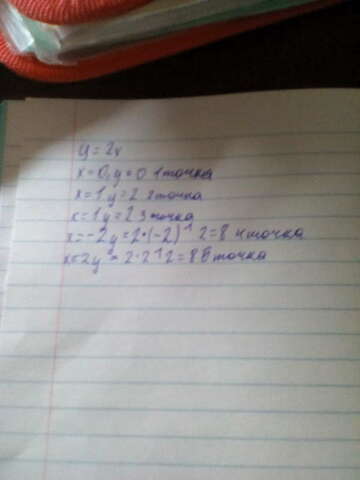 y = 2x
x=0, y=0 1точка
x=1, y=2 2точка
x=1 y=2 3точка
x=-2 y=2·(-2)^ 2=8 4точка
x=2 y = 2·2^ 2=8 5точка